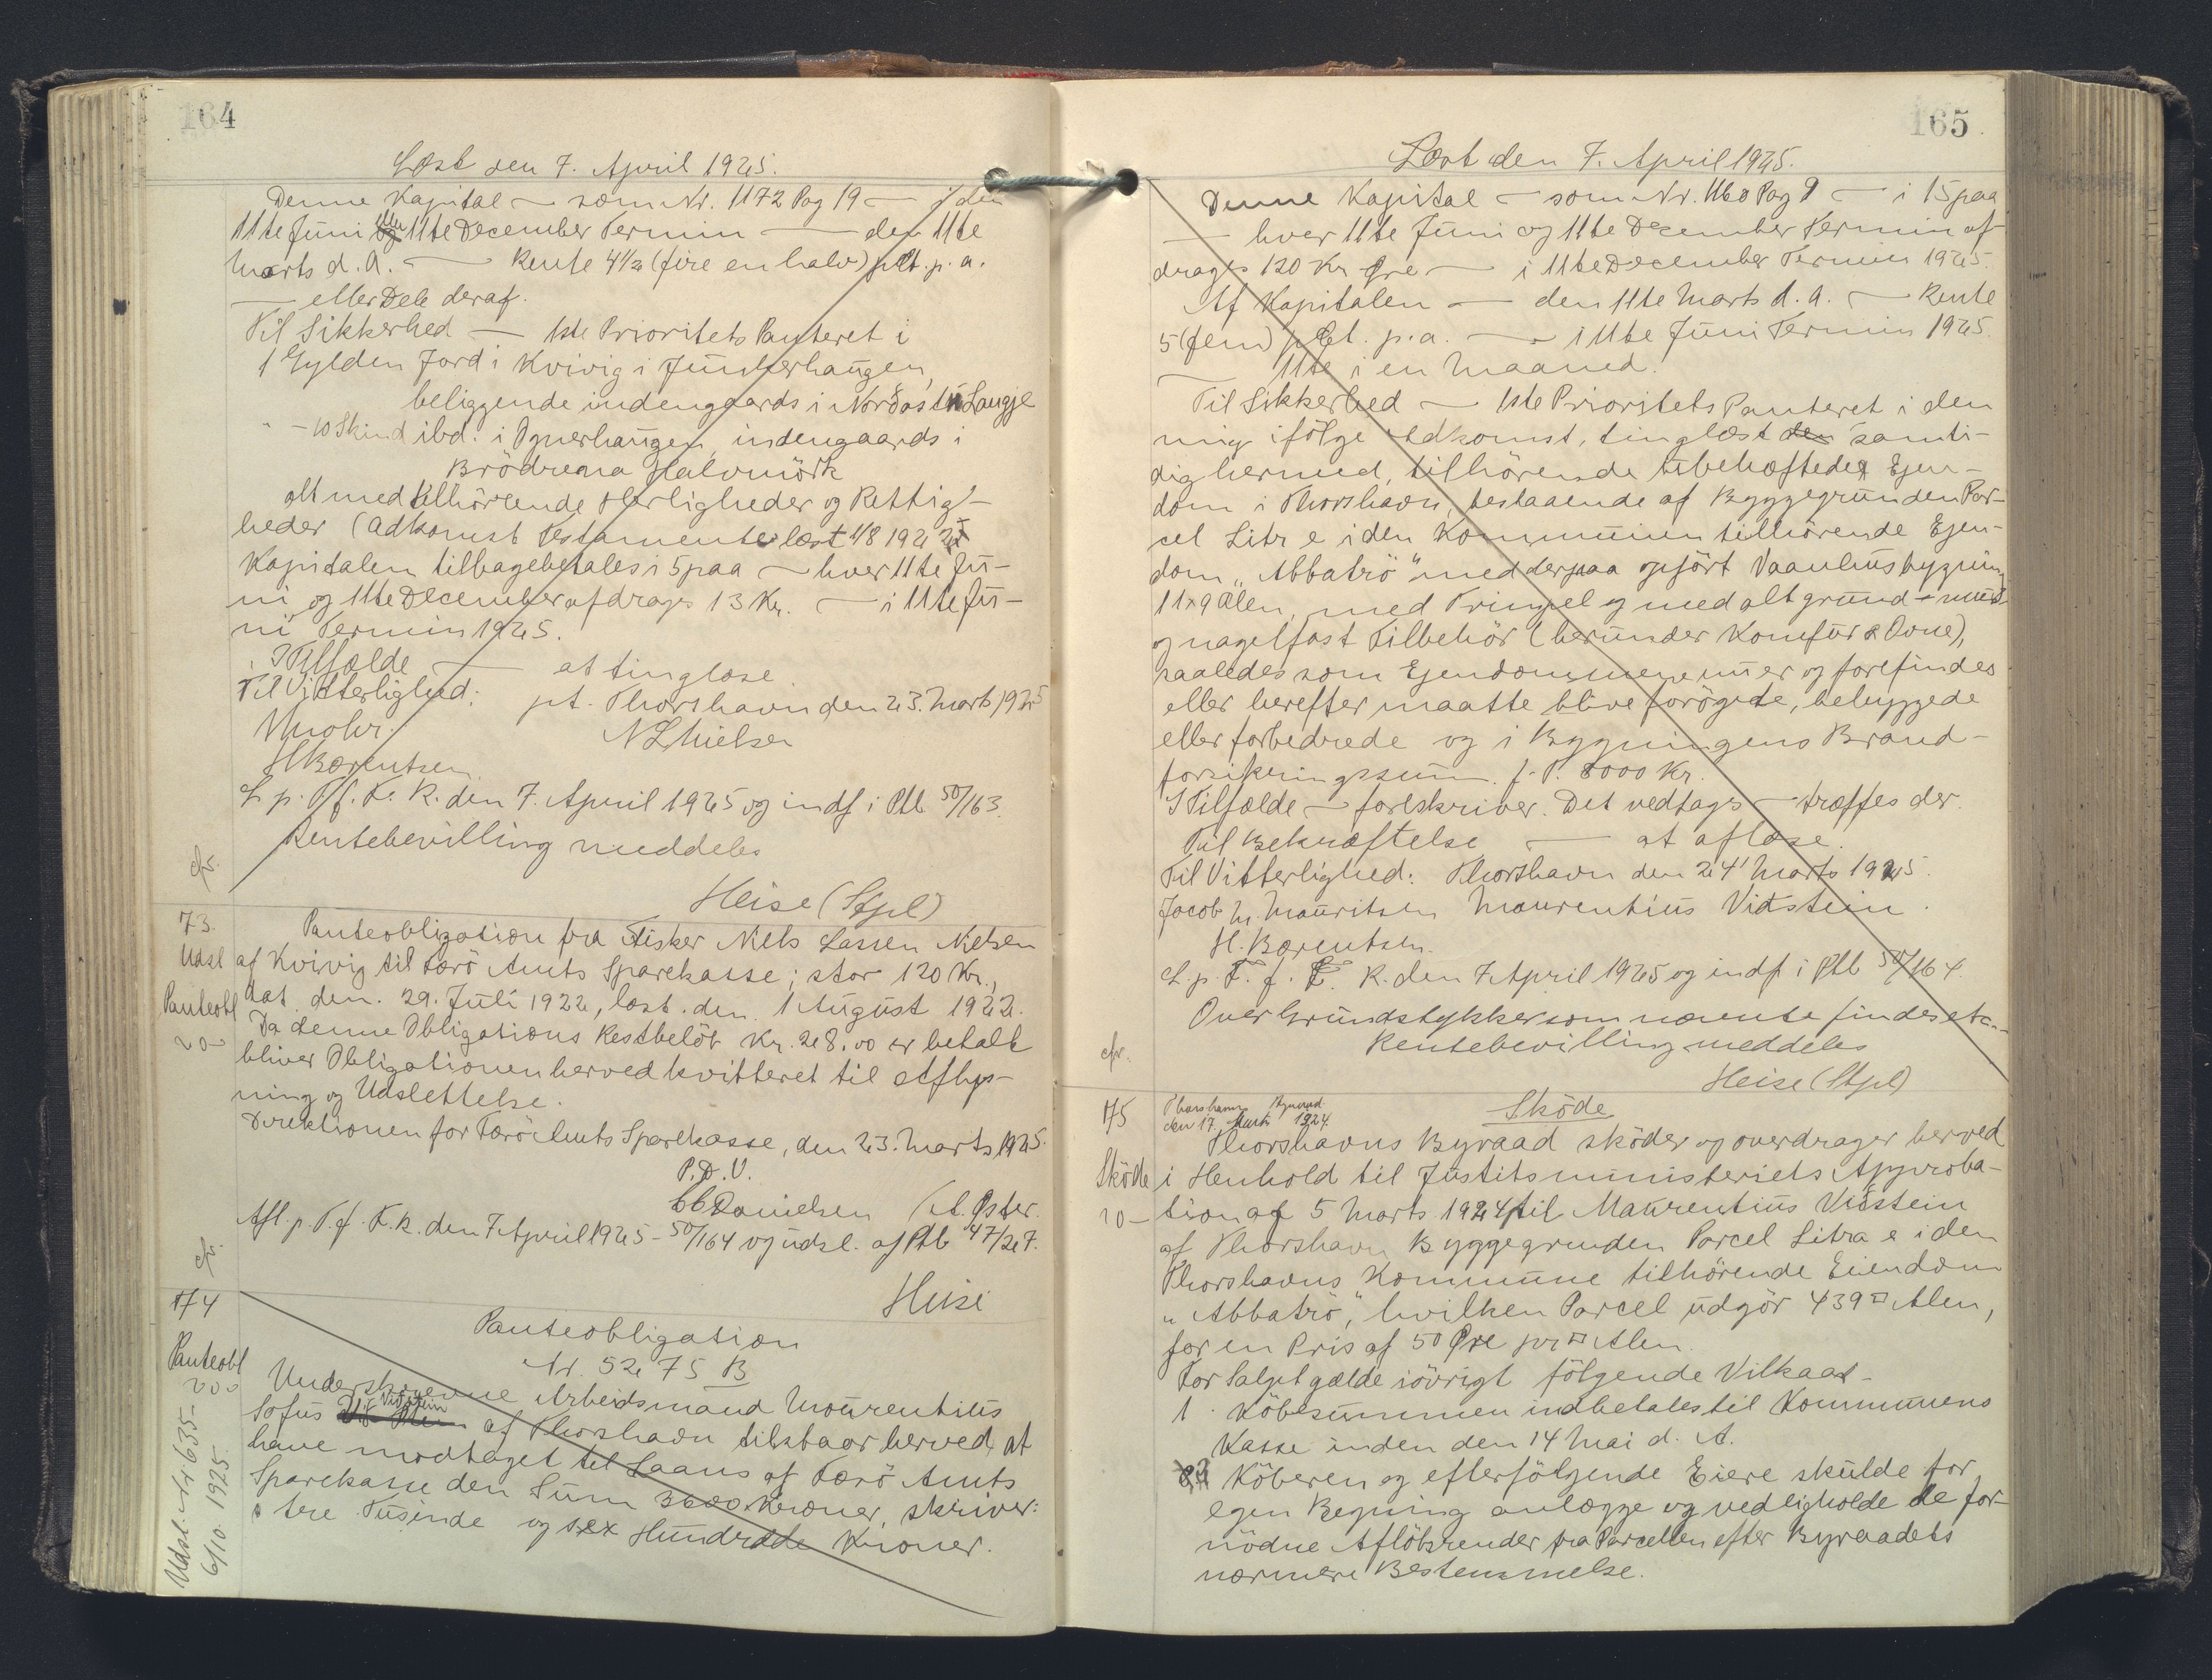 164
Læst den 7. April 1925.
Denne Kapital — som Nr. 1172 Pag 19 — i den
11te Juni eller 11te December Termin — den 11te
Marts d. A. — Rente 4½ (fire en halv) pCt. p. a.
— eller Dele deraf.
Til Sikkerhed — 1ste Prioritets Panteret i
1 Gylden Jord i Kvivig i Junkerhaugen,
beliggende indengaards i Nordasta Laugje
- 10 Skind ibd. i Ognerhaugen, indengaards i
Brödrena Halvmörk
alt med tilhörende Herligheder og Rettig-
heder (Adkomst Testamente læst 1/8 1922
Kapitalen tilbagebetales i 5 paa — hver 11te Ju-
ni og 11te December afdrages 13 Kr. — i 11te Ju-
ni Termin 1925.
I Tilfælde — at tinglæse.
Til Vitterlighed: pt. Thorshavn den 23. Marts 1925
Mohr. N L Nielsen
H Bærentsen
L. p. T. f. F. K. den 7. April 1925 og indf i Ptb 50/163.
Rentebevilling meddeles
cfr.
Heise (Stpl)
73
Udsl
Panteobl
20
Panteobligation fra Fisker Niels Lassen Nielsen
af Kvivig til Færö Amts Sparekasse; stor 120 Kr.,
dat. den. 29. Juli 1922, læst. den 1 August 1922.
Da denne Obligations Restbelöb Kr. 28.00 er betalt
bliver Obligationen herved kvitteret til Aflys-
ning og Udslettelse.
Direktionen for Færö Amts Sparekasse, den 23. Marts 1925.
P. D. V.
C C Danielsen / A. Öster.
Afl. p. T. f. F. K. den 7 April 1925 - 50/164 og udsl. af Ptb 47/27.
cfr.
Heise
174
Panteobl
200
Udsl. Nr 635-
6/10. 1925.
Panteobligation
Nr. 5275 B
Underskrevne Arbeidsmand Maurentius
Sofus Vidstein af Thorshavn tilstaar herved, at
have modtaget til Laans af Færö Amts
Sparekasse den Sum 3600 Kroner, skriver:
tre Tusinde og sex Hundrede Kroner.
165
Læst den 7. April 1925.
Denne Kapital — som Nr. 1160 Pag 9 — i 15 paa
— hver 11te Juni og 11te December Termin af-
drages 120 Kr. Øre — i 11te December Termin 1925
Af Kapitalen — den 11te Marts d. A. — Rente
5 (fem) pCt. p. a. — i 11te Juni Termin 1925.
11te i en Maaned.
Til Sikkerhed — 1ste Prioritets Panteret i den
mig ifölge Adkomst, tinglæst den samti-
dig hermed, tilhörende ubehæftede Ejen-
dom i Thorshavn, bestaaende af Byggegrunden Par-
cel Litr e i den Kommunen tilhörende Ejen-
dom "Abbatrö" med derpaa opfört Vaanhusbygning
11x9 Alen, med Tringel og med alt grund - mur-
og nagelfast Tilbehör (herunder Komfur & Ovne),
saaledes som Ejendommene nu er og forefindes
eller herefter maatte blive forögede, bebyggede
eller forbedrede og i Bygningens Brand-
forsikringssum. f. T. 8000 Kr.
I Tilfælde — forskriver. Det vedtages — træffes der.
Til Bekræftelse — at aflæse.
Til Vitterlighed: Thorshavn den 24' Marts 1925.
Jacob M. Mauritsen Maurentius Vidstein.
H. Bærentsen.
L. p. T. f. F. K. den 7 April 1925 og indf i Ptb 50/164.
Over Grundstykker som nævnte findes etc.
Rentebevilling meddeles
cfr.
Heise (Stpl)
175
Sköde
10-
Thorshavns Byraad
den 17. Marts 1924.
Sköde
Thorshavns Byraad sköder og overdrager herved
i Henhold til Justitsministeriets Approba-
tion af 5 Marts 1924 til Maurentius Vidstein
af Thorshavn Byggegrunden Parcel Litra e i den
Thorshavns Kommune tilhörende Eiendom
"Abbatrö", hvilken Parcel udgör 439 □ Alen,
for en Pris af 50 Øre pr □ Alen.
For Salget gælde iövrigt fölgende Vilkaar-
1. Köbesummen indbetales til Kommunens
Kasse inden den 14 Mai d. A.
2 Köberen og efterfölgende Eiere skulde for
egen Regning anlægge og vedligholde de for-
nödne Aflöbsrender fra Parcellen efter Byraadets
nærmere Bestemmelse.